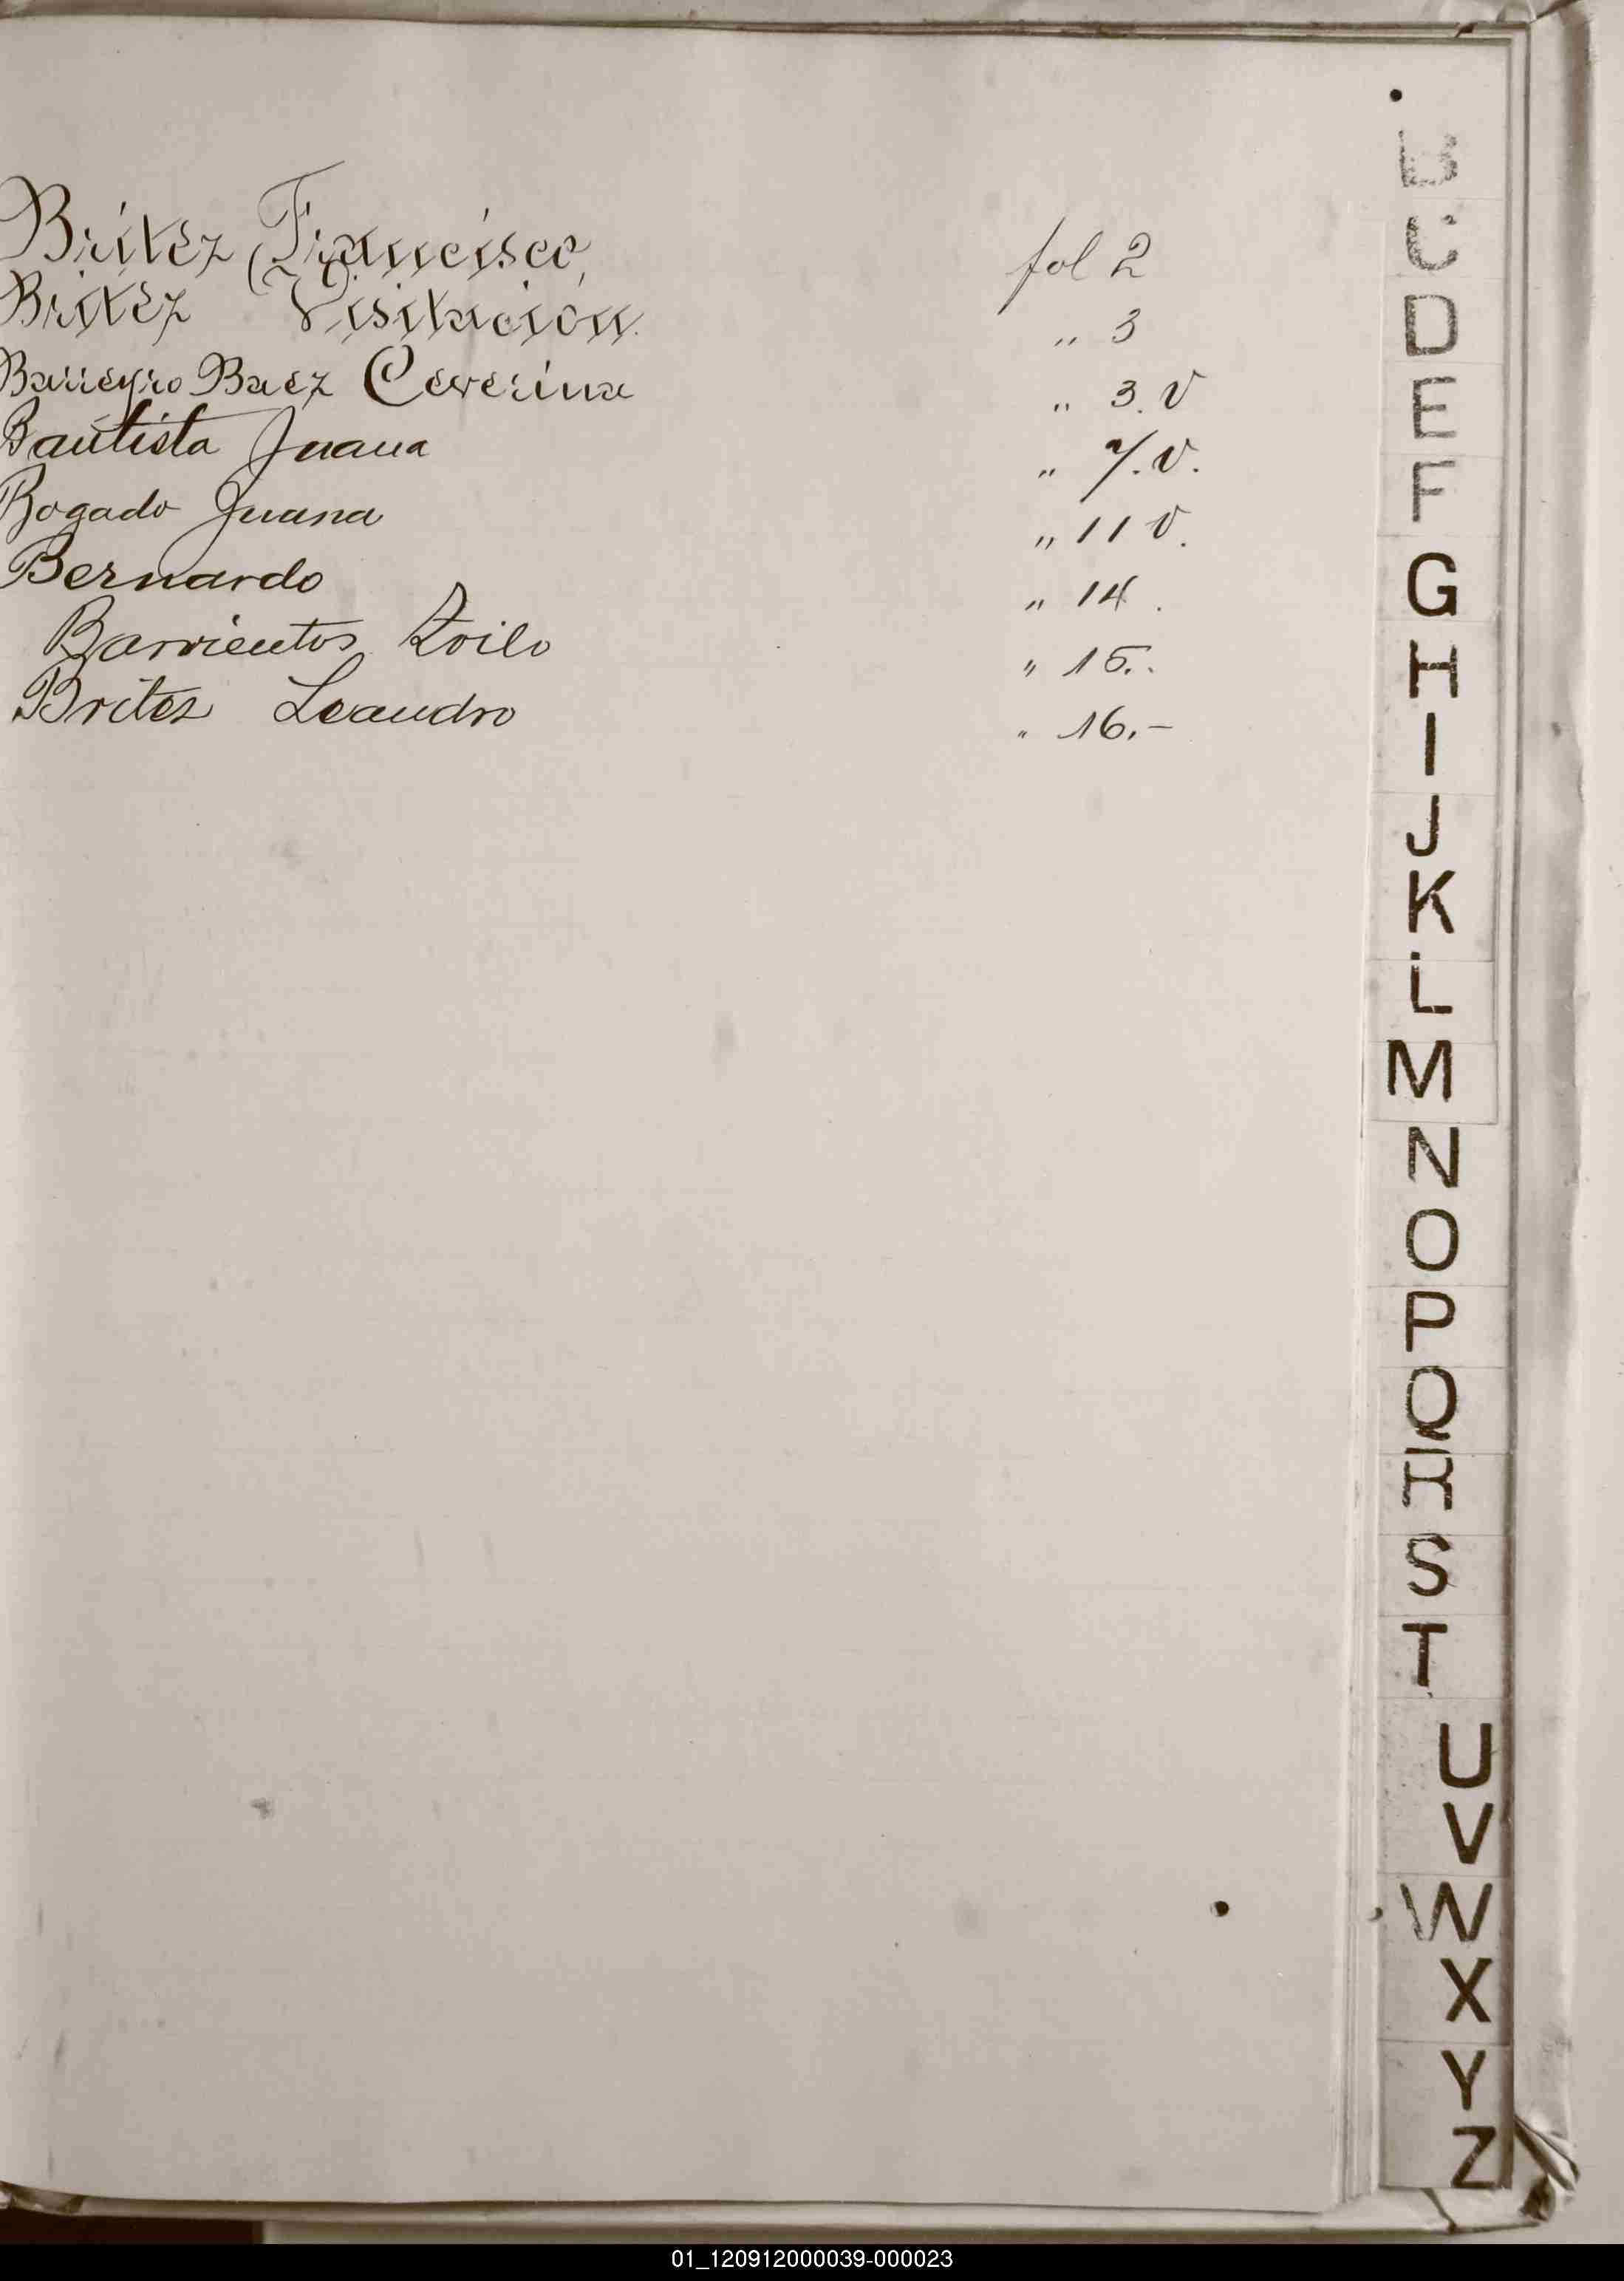 Britez Francisco, fol 2
Britez Visitación. „ 3
Barreyro Baez Ceverina „ 3. V
Bautista Juana „ 7. V.
Bogado Juana „ 11 V.
Bernardo „ 14.
Barrientos Zoilo „ 15..
Britez Leandro „ 16.-
B
C
D
E
F
G
H
I
J
K
L
M
N
O
P
Q
R
S
T
U
V
W
X
Y
Z
01_120912000039-000023